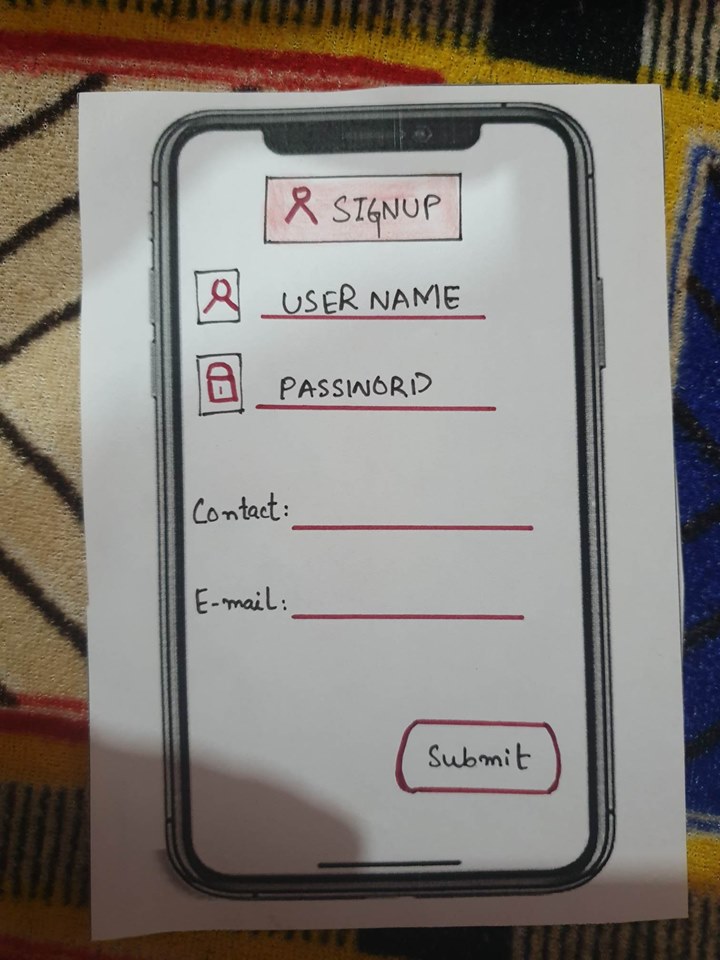 SIGNUP
USER NAME
PASSWORD
Contact:
E-mail:
Submit